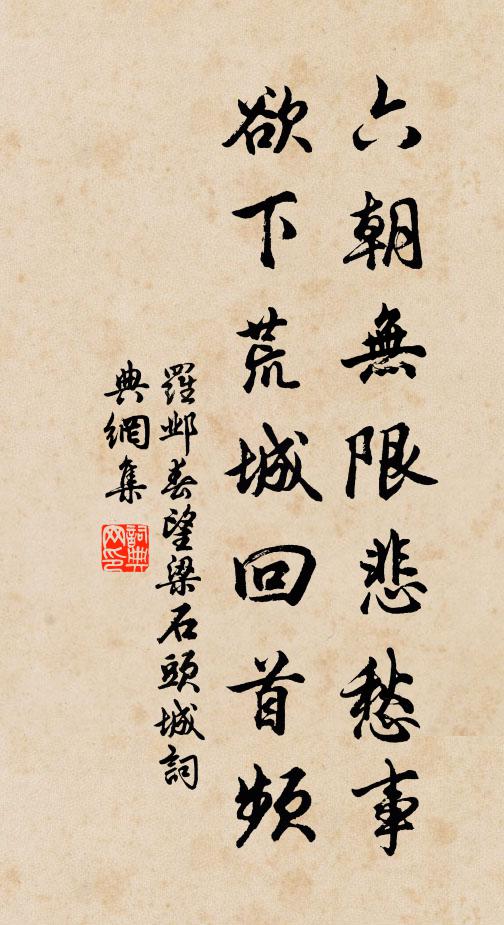 六朝無限悲愁事
欲下荒城回首頻
羅鄴春望梁石頭城詞
典網集
詞典
网印